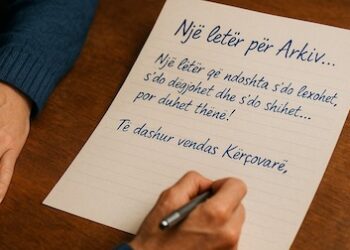 Një letër për Arkiv...
Një letër që ndoshta s'do lexohet,
s'do degjohet dhe s'do shihet...
por duhet thënë!
Të dashur vendas Kërçovarë,